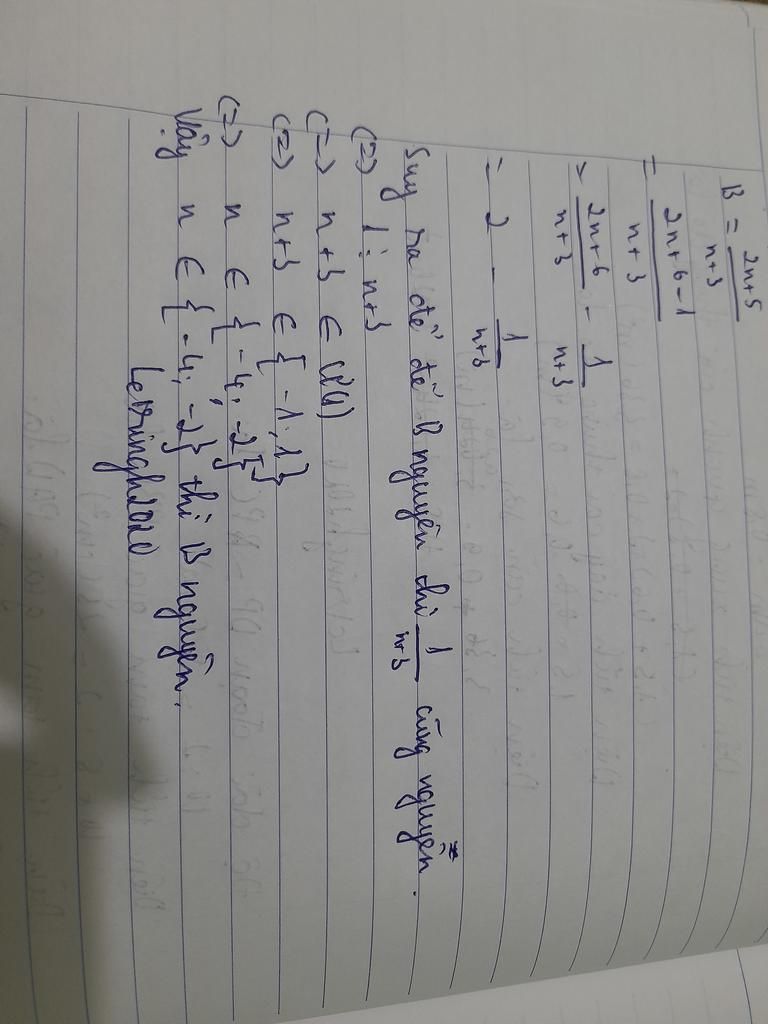 B = \frac{2n+5}{n+3}
= \frac{2n+6-1}{n+3}
= \frac{2n+6}{n+3} - \frac{1}{n+3}
= 2 - \frac{1}{n+3}
Suy ra để để B nguyên thì \frac{1}{n+3} cũng nguyên.
(=) 1 ⋮ n+3
(=) n+3 ∈ Ư(1)
(=) n+3 ∈ {-1; 1}
(=) n ∈ {-4; -2}
Vậy n ∈ {-4; -2} thì B nguyên.